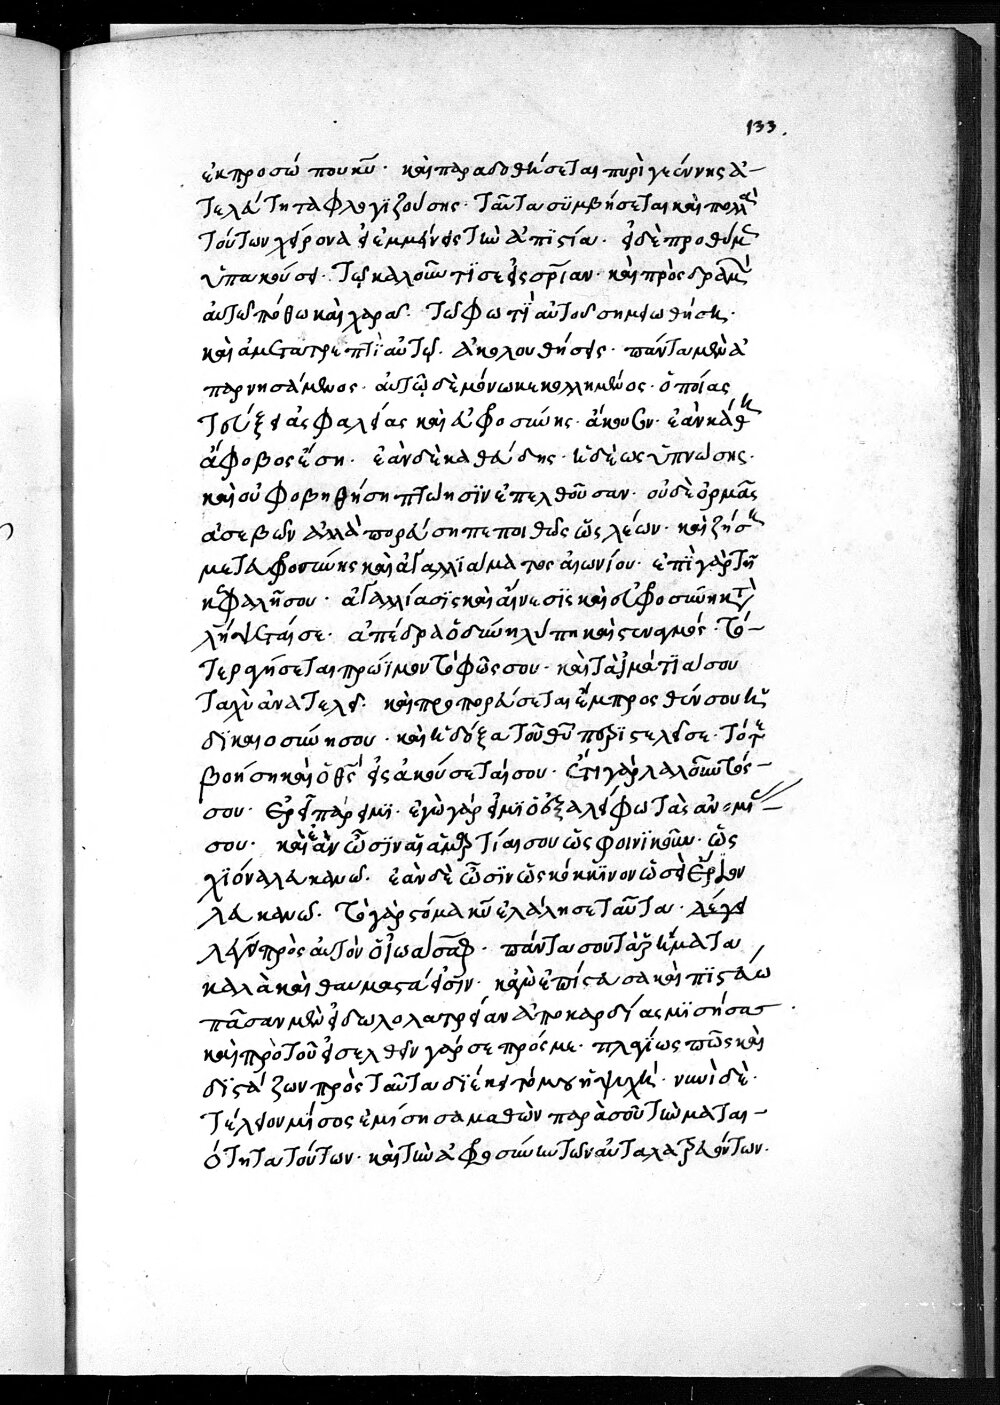 133.
ἐκ προσώπου κυ̅· καὶ παραδοθήσεται πυρὶ γεέννης ἀ–
τελάτητα φλογϊζούσης· ταῦτα συμβήσεται καὶ πολλὰ
τούτων χείρονα εἰ ἐμμείνεις τῆ ἀπιστία· εἰ δὲ προθύμως
ὑπακούσει τῷ καλοῦντί σε εἰς σρίαν· καὶ προσδραμεῖ
αὐτῷ πόθω καὶ χαρᾶ· τῶ φωτὶ αὐτοῦ σημειωθήση·
καὶ ἀμεταστρεπτὶ αὐτῷ ἀκολουθήσεις· πάντα μὲν ἀ
παρνησάμενος· αὐτῷ δὲ μόνω κεκολλημένος· ὁποίας
τεύξει ἀσφαλείας καὶ εὐφροσύνης ἄκουσον· ἐὰν κάθη
ἄφοβος ἔση· ἐὰν δὲ καθεύδης· ἡδέως ὑπνώσης·
καὶ οὐ φοβηθήση πτώησϊν ἐπελθοῦσαν· οὐδὲ ὁρμὰς
ἀσεβῶν ἀλλὰ πορεύση πεποιθὼς ὡς λέων· καὶ ζήση
μετ' εὐφροσύνης καὶ ἀγαλλϊάματος αἰωνίου· ἐπὶ γὰρ τῆ
κεφαλῆ σου· ἀγαλλίασϊς καὶ αἴνεσϊς καὶ εὐφροσύνη κατα
λήψεταί σε· ἀπέδρα ὀδύνη λύπη καὶ στεναγμός· τό–
τε ραγήσεται πρώϊμον τὸ φῶς σου· καὶ τὰ ἱμάτϊά σου
ταχὺ ἀνατελεῖ· καὶ προπορεύσεται ἔμπροσθέν σου ἡ
δϊκαιοσύνη σου· καὶ ἡ δόξα τοῦ θυ̅ περιστελεῖ σε· τότε
βοήση καὶ ὁ θς̅ εἰσακούσεταί σου· ἔτι γὰρ λαλοῦντός–
σου· ἐρεῖ πάρειμϊ· ἐγὼ γάρ εἰμϊ ὁ ἐξαλείφων τὰς ἀνομί–
σου· καὶ ἐὰν ὦσϊν αἱ ἁμαρτίαι σου ὡς φοινϊκοῦν· ὡς
χϊόνα λευκανῶ· ἐὰν δὲ ὦσϊν ὡς κόκκϊνον ὡσεὶ ἔριον
λευκανῶ· τὸ γὰρ στόμα κυ̅ ἐλάλησε ταῦτα· λέγει
λέγει πρὸς αὐτὸν ὁ ἰωάσαφ· πάντα σου τὰ ῥήματα
καλὰ καὶ θαυμαστά εἰσϊν· κἀγὼ ἐπίστευσα καὶ πϊστεύω
πᾶσαν μὲν εἰδωλολατρείαν ἀπὸ καρδίας μϊσήσας
καὶ πρὸ τοῦ εἰσελθεῖν γάρ σε πρός με· πλαγίως πῶς καὶ
δϊστάζων πρὸς ταῦτα δϊέκειτό μου ἡ ψυχή· νυνὶ δὲ·
τέλειον μῖσος ἐμίσησα μαθὼν παρὰ σοῦ τὴν μαται–
ότητα τούτων· καὶ τὴν ἀφροσύνην τῶν αὐτὰ λατρευόντων·